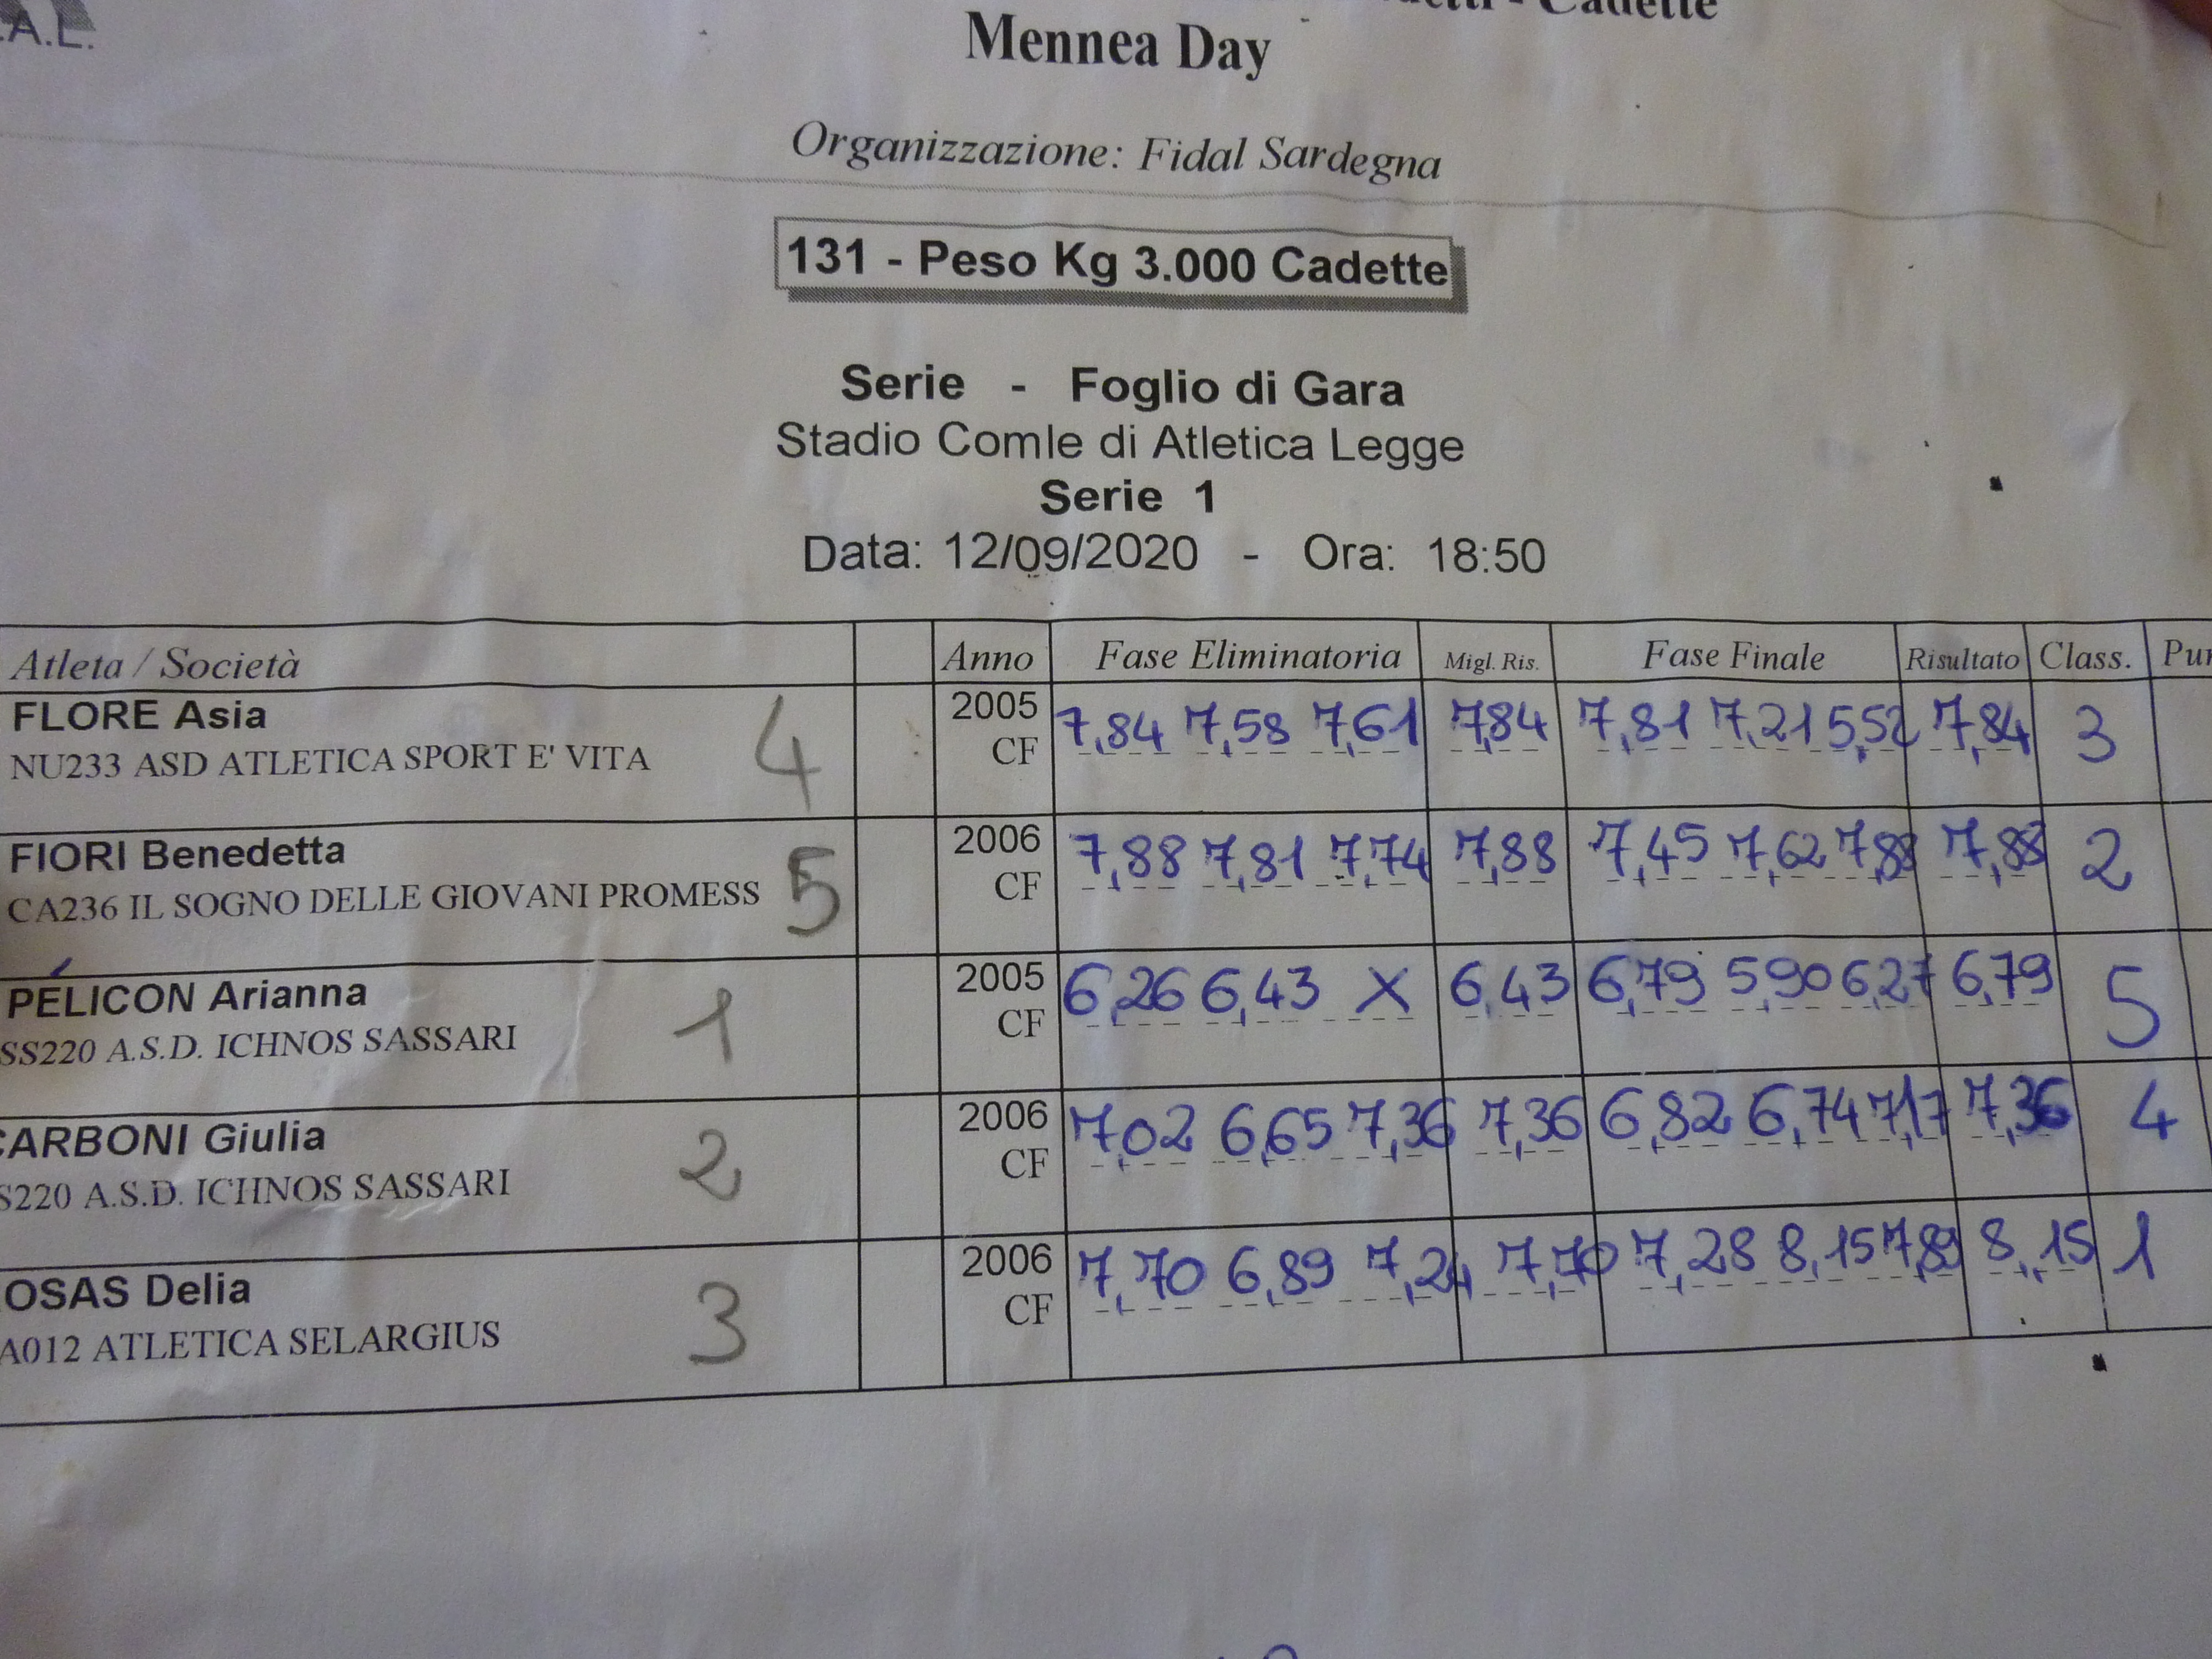 A.L.
Cadette
Mennea Day
Organizzazione: Fidal Sardegna
131 - Peso Kg 3.000 Cadette
Serie - Foglio di Gara
Stadio Comle di Atletica Legge
Serie 1
Data: 12/09/2020 - Ora: 18:50
Atleta / Società Anno Fase Eliminatoria Migl. Ris. Fase Finale Risultato Class. Pun
FLORE Asia 4 2005 7,84 7,58 7,61 7,84 7,81 7,21 5,52 7,84 3
NU233 ASD ATLETICA SPORT E' VITA CF
FIORI Benedetta 5 2006 7,88 7,81 7,74 7,88 7,45 7,62 7,88 7,88 2
CA236 IL SOGNO DELLE GIOVANI PROMESS CF
PELICON Arianna 1 2005 6,26 6,43 X 6,43 6,79 5,90 6,27 6,79 5
SS220 A.S.D. ICHNOS SASSARI CF
CARBONI Giulia 2 2006 7,02 6,65 7,36 7,36 6,82 6,74 7,17 7,36 4
S220 A.S.D. ICHNOS SASSARI CF
OSAS Delia 3 2006 7,70 6,89 7,24 7,70 7,28 8,15 7,89 8,15 1
A012 ATLETICA SELARGIUS CF